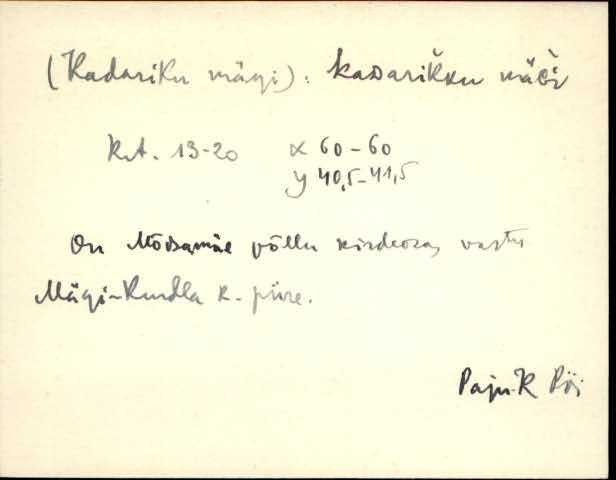 (Kadariku mägi): kaᴅariˋkku mäɢ̌i
K.A. 13-20 x 60-60
y 40,5-41,5
On Mõdsamäe põllu kirdeosas, vastu
Mägi-Kurdla k. piire.
Paju-K Pöi